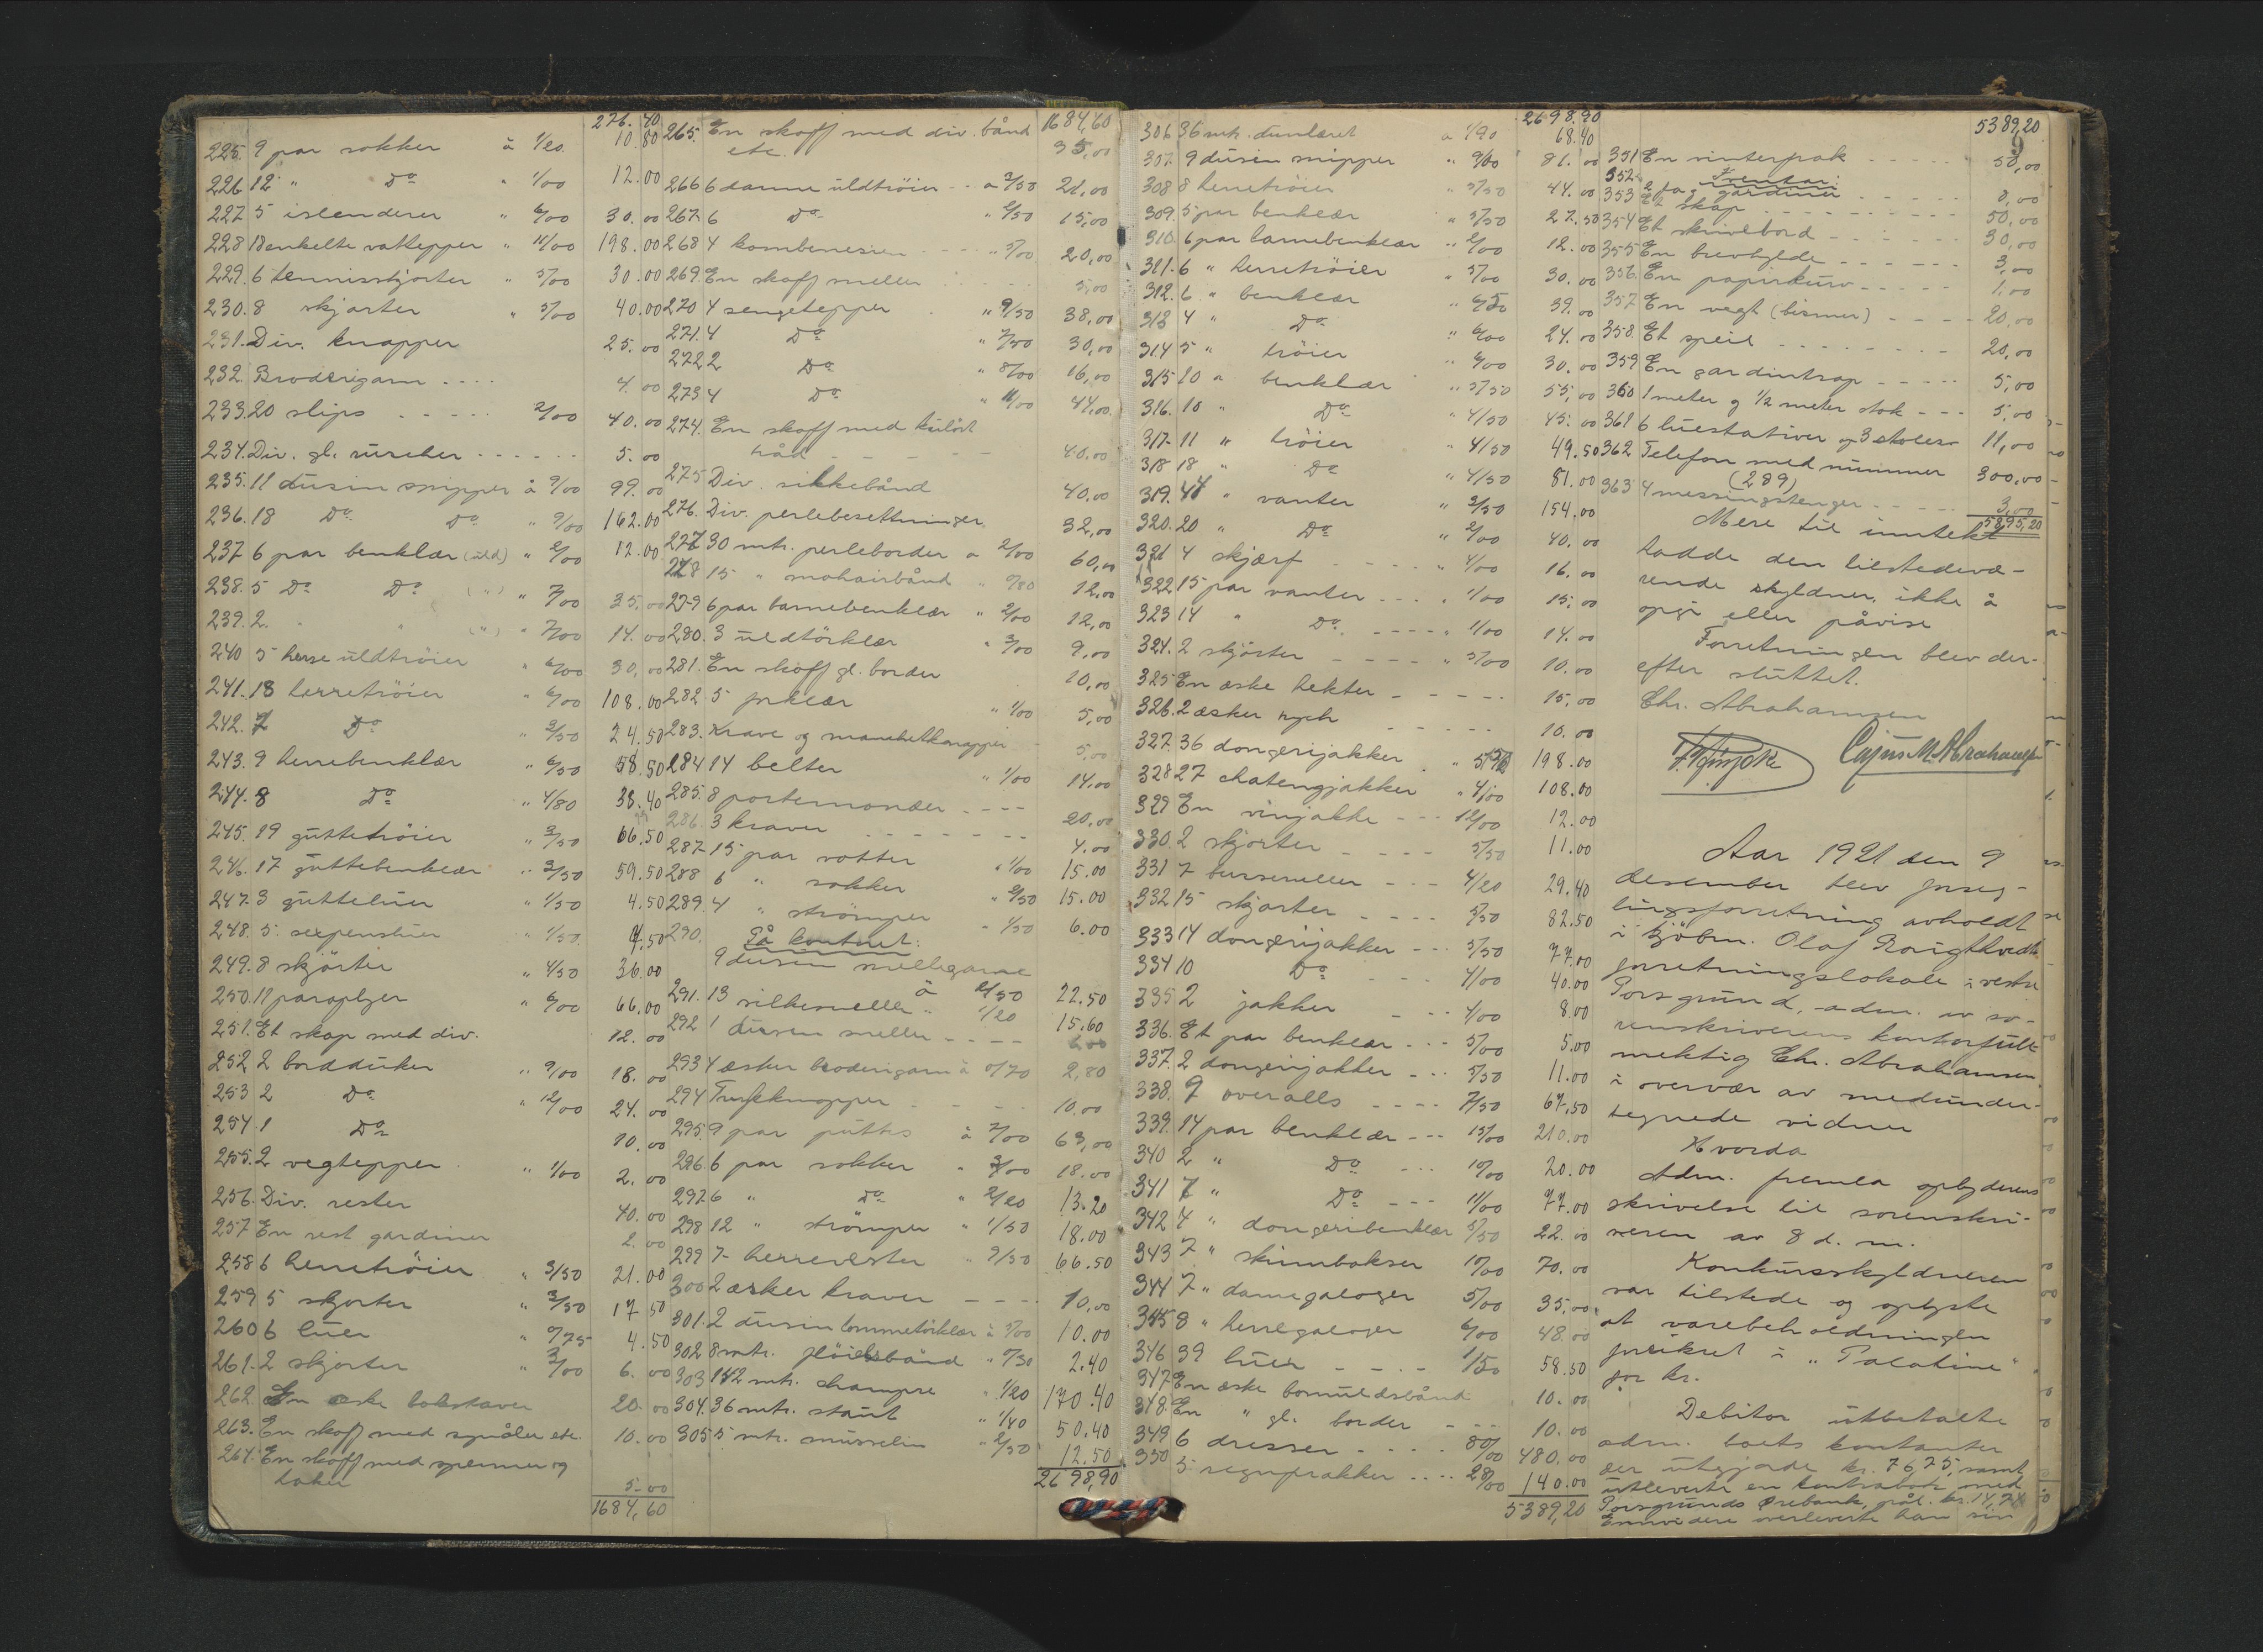 276.40
225. 9 par sokker à 1/20 10.80
226 12 " Do " 1/00 12.00
227 5 islenderer " 6/00 30.00
228 18 enkelte vattepper " 11/00 198.00
229. 6 tennisskjorter " 5/00 30.00
230. 8 skjorter " 5/00 40.00
231. Div. knapper 25.00
232 Broderigarn .... 4.00
233. 20 slips ..... 2/00 40.00
234. Div. gl. ruscher ...... 5.00
235. 11 dusin snipper à 9/00 99.00
236. 18 Do Do " 9/00 162.00
237 6 par benklær (uld) " 2/00 12.00
238. 5 Do Do (") " 7/00 35.00
239. 2. " " (") " 7/00 14.00
240 5 herre uldtröier " 6/00 30,00
241. 18 herretröier " 6/00 108.00
242. 7 Do " 3/50 24.50
243. 9 herrebenklær " 6/50 58.50
244. 8 Do " 4/80 38.40
245. 19 guttetröier " 3/50 66.50
246. 17 guttebenklær " 3/50 59.50
247. 3 gutteluer " 1/50 4.50
248. 5. sixpensluer " 1/50 7.50
249. 8 skjörter " 4/50 36.00
250. 11 paraplyer " 6/00 66.00
251. Et skap med div. 12.00
252 2 bordduker " 9/00 18.00
253 2 Do " 12/00 24.00
254. 1 Do 10.00
255. 2 vegtepper " 1/00 2.00
256. Div. rester 40.00
257 En rest gardiner 2.00
258 6 herretröier " 3/50 21.00
259 5 skjorter " 3/50 17 50
260 6 luer " 0/75 4.50
261. 2 skjorter " 3/00 6.00
262. En eske bokstaver 20.00
263. En skoff med synåler etc. 10.00
264. En skoff med spenner og
haker 5.00
1684,60
1684,60
265. En skoff med div. bånd
etc. 35,00
266 6 dame uldtröier .. a 3/50 21,00
267. 6 Do " 2/50 15,00
268 4 kombenesien " 5/00 20,00
269. En skoff smeller 5,00
270 4 sengetepper " 9/50 38,00
271. 4 Do " 7/50 30,00
272 2 Do " 8/00 16,00
273 4 Do " 11/00 44,00
274. En skoff med kulört
tråd ----- 40.00
275 Div. silkebånd 40,00
276. Div. perlebesettninger 32,00
277 30 mtr. perleborder a 2/00 60,00
278 15 " mohairbånd " 0/80 12,00
279 6 par barnebenklær " 2/00 12,00
280. 3 uldtörklær " 3/00 9,00
281. En skoff gl. border 20,00
282 5 forklær " 1/00 5,00
283. Krave og manchetknapper 5,00
284 14 belter " 1/00 14.00
285. 8 portemonæer ---- 20.00
286. 3 kraver ------ 4.00
287 15 par votter " 1/00 15.00
288 6 " sokker " 2/50 15.00
289. 4 " strömper " 1/50 6.00
290. På kontoret:
9 dusin mellegarne
à 2/50 22.50
291. 13 silkesmeller " 1/20 15.60
292 1 dusin smeller ---- 6.00
293 4 æsker broderigarn à 0/70 2,80
294 Trykknapper ---- 10.00
295. 9 par puttis à 7/00 63,00
296. 6 par sokker " 3/00 18.00
297 6 " Do " 2/20 13.20
298 12 " strömper " 1/50 18.00
299 7 herrevester " 9/50 66.50
300 2 æsker kraver ---- 10,00
301. 2 dusin lommetörklær à 5/00 10.00
302 8 mtr. flöielsbånd " 0/30 2.40
303 142 mtr. champre " 1/20 170.40
304. 36 mtr. stout " 1/40 50.40
305 5 mtr. musselin " 2/50 12.50
2698,90
2698,90
306 36 mtr. dunlæret a 1/90 68.40
307. 9 dusin snipper " 9/00 81.00
308 8 herretröier " 5/50 44.00
309. 5 par benklær " 5/50 27.50
310. 6 par barnebenklær " 2/00 12.00
311. 6 " herretröier " 5/00 30.00
312. 6 " benklær " 6/50 39.00
313 4 " Do " 6/00 24.00
314 5 " tröier " 6/00 30.00
315 10 " benklær " 5/50 55,00
316. 10 " Do " 4/50 45.00
317. 11 " tröier " 4/50 49.50
318 18 " Do " 4/50 81.00
319. 44 " vanter " 3/50 154.00
320. 20 " Do " 2/00 40.00
321 4 skjærf ---- " 4/00 16.00
322 15 par vanter --- " 1/00 15.00
323 14 " Do ---- " 1/00 14.00
324. 2 skjörter ---- " 5/00 10.00
325 En æske hekter ----- 15.00
326. 2 æsker rysh ----- 10.00
327. 36 dongerijakker " 5/50 198.00
328 27 chatengjakker " 4/00 108.00
329 En vinjakke --- 12/00 12.00
330. 2 skjorter ---- 5/50 11.00
331 7 busseruller --- 4/20 29.40
332 15 skjorter ---- 5/50 82.50
333 14 dongerijakker --- 5/50 77.00
334 10 Do -- 4/00 40.00
335 2 jakker -- 4/00 8.00
336. Et par benklær --- 5/00 5.00
337. 2 dongerijakker --- 5/50 11.00
338. 9 overalls ---- 7/50 67,50
339. 14 par benklær --- 15/00 210.00
340 2 " Do --- 10/00 20.00
341 7 " Do --- 11/00 77.00
342 4 " dongeribenklær 5/50 22.00
343 7 " skinnbokser 10/00 70.00
344 7 " damegaloger 5/00 35,00
345 8 " herregaloger 6/00 48.00
346 39 luer ---- 1/50 58.50
347 En æske bomuldsbånd 10.00
348. En " gl. border --- 10.00
349 6 dresser ---- 80/00 480.00
350 5 regnfrakker .... 28/00 140.00
5389,20
5389,20
9
351 En vinterfrak ----- 50,00
352 Inventar:
2 fag gardiner ----- 8,00
353 Et skap --------- 50,00
354 Et skrivebord ----- 30,00
355 En brevhylde ------ 3,00
356. En papirkurv ----- 1,00
357 En vegt (bismer) ---- 20,00
358. Et speil -------- 20,00
359 En gardintrap ----- 5,00
360 1 meter og 1/2 meter stok --- 5,00
361 6 luestativer og 3 stoler 11,00
362 Telefon med nummer
(289) 300,00
363 4 messingstenger ----- 3,00
5895,20
Mere til inntekt
hadde den tilstedevæ-
rende skyldner, ikke å
opgi eller påvise
Forretningen blev der-
efter sluttet.
Chr. Abrahamsen
Cajus M. Abrahamsen
Aar 1921 den 9
desember blev forseg-
lingsforretning avholdt
i kjöbm. Olaf Roigthvedts
forretningslokale i vestre
Porsgrund, adm. av so-
renskriverens kontorfull-
mektig Chr. Abrahamsen
i overvær av medunder-
tegnede vidner
Hvorda
Adm. fremla opbyderens
skrivelse til sorenskri-
veren av 8 d. m.
Konkursskyldneren
var tilstede og oplyste
at varebeholdningen
forsikret i "Palatine"
for kr.
Debitor utbetalte
adm. boets kontanter
der utgjorde kr. 76 75, samt
utleverte en kontrabok med
Porsgrunds Ørebank, pål. kr. 14,78
Ennvidere overleverte han sin